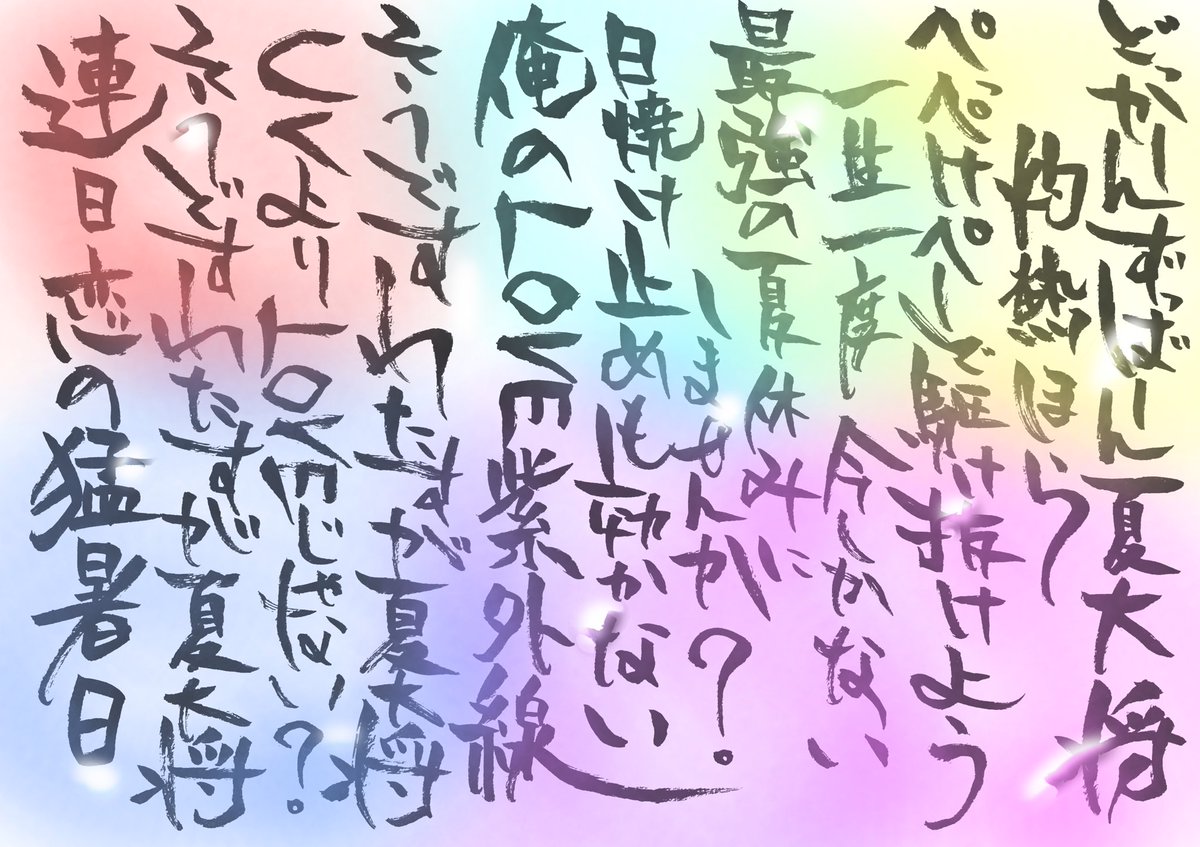 どっかーんずっばーん夏大将
灼熱ほら
ぺぺっけぺーで駆け抜けよう
一生一度 今しかない
最強の夏休みに
しませんか？
日焼け止めも効かない
俺のLOVE紫外線
そうですわたすが夏大将
UVよりLOVEじゃない？
そうですわたすが夏大将
連日恋の猛暑日